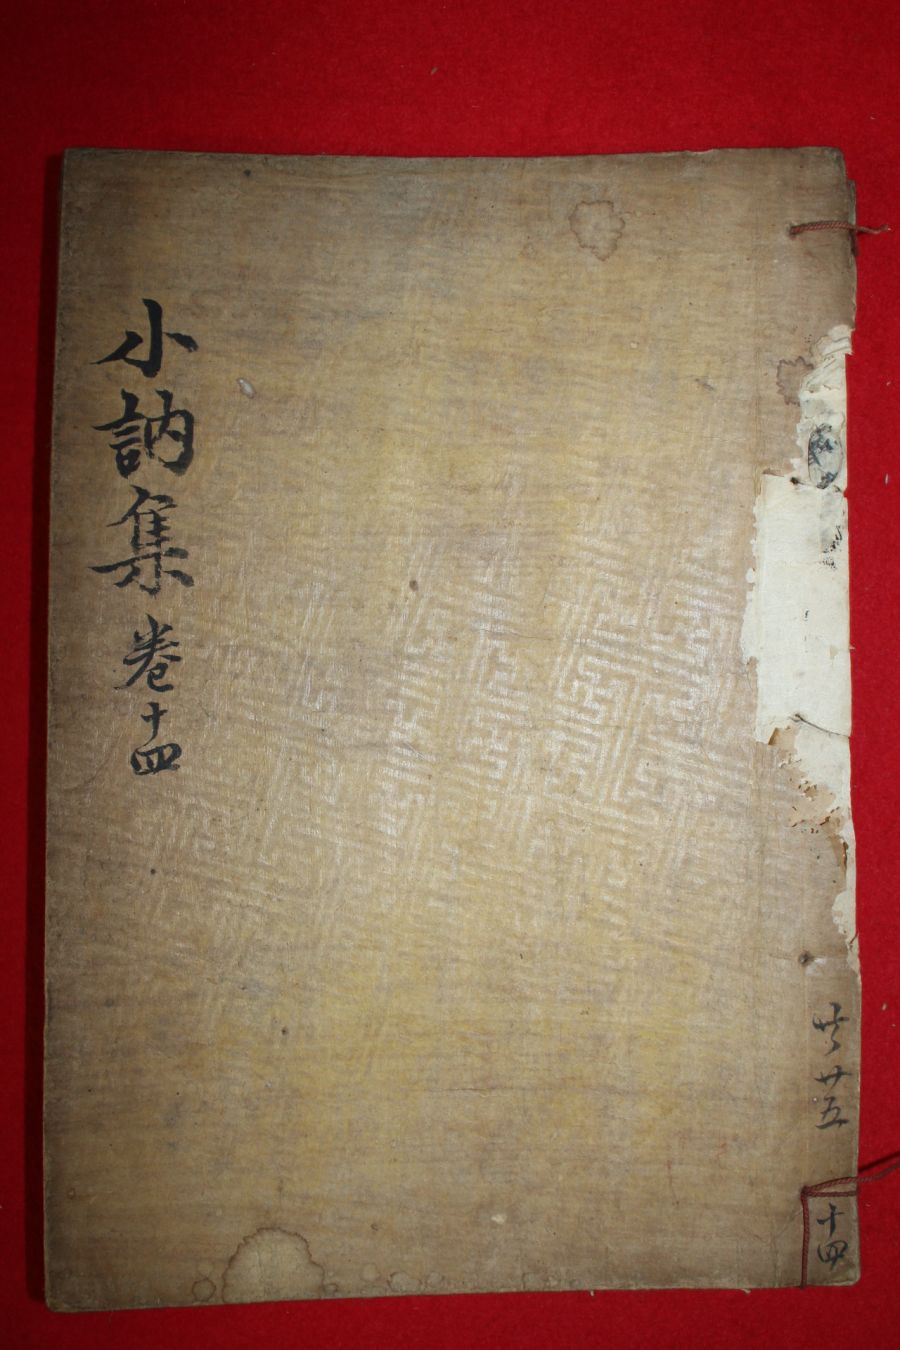 小訥集 卷十四
共廿五
十四